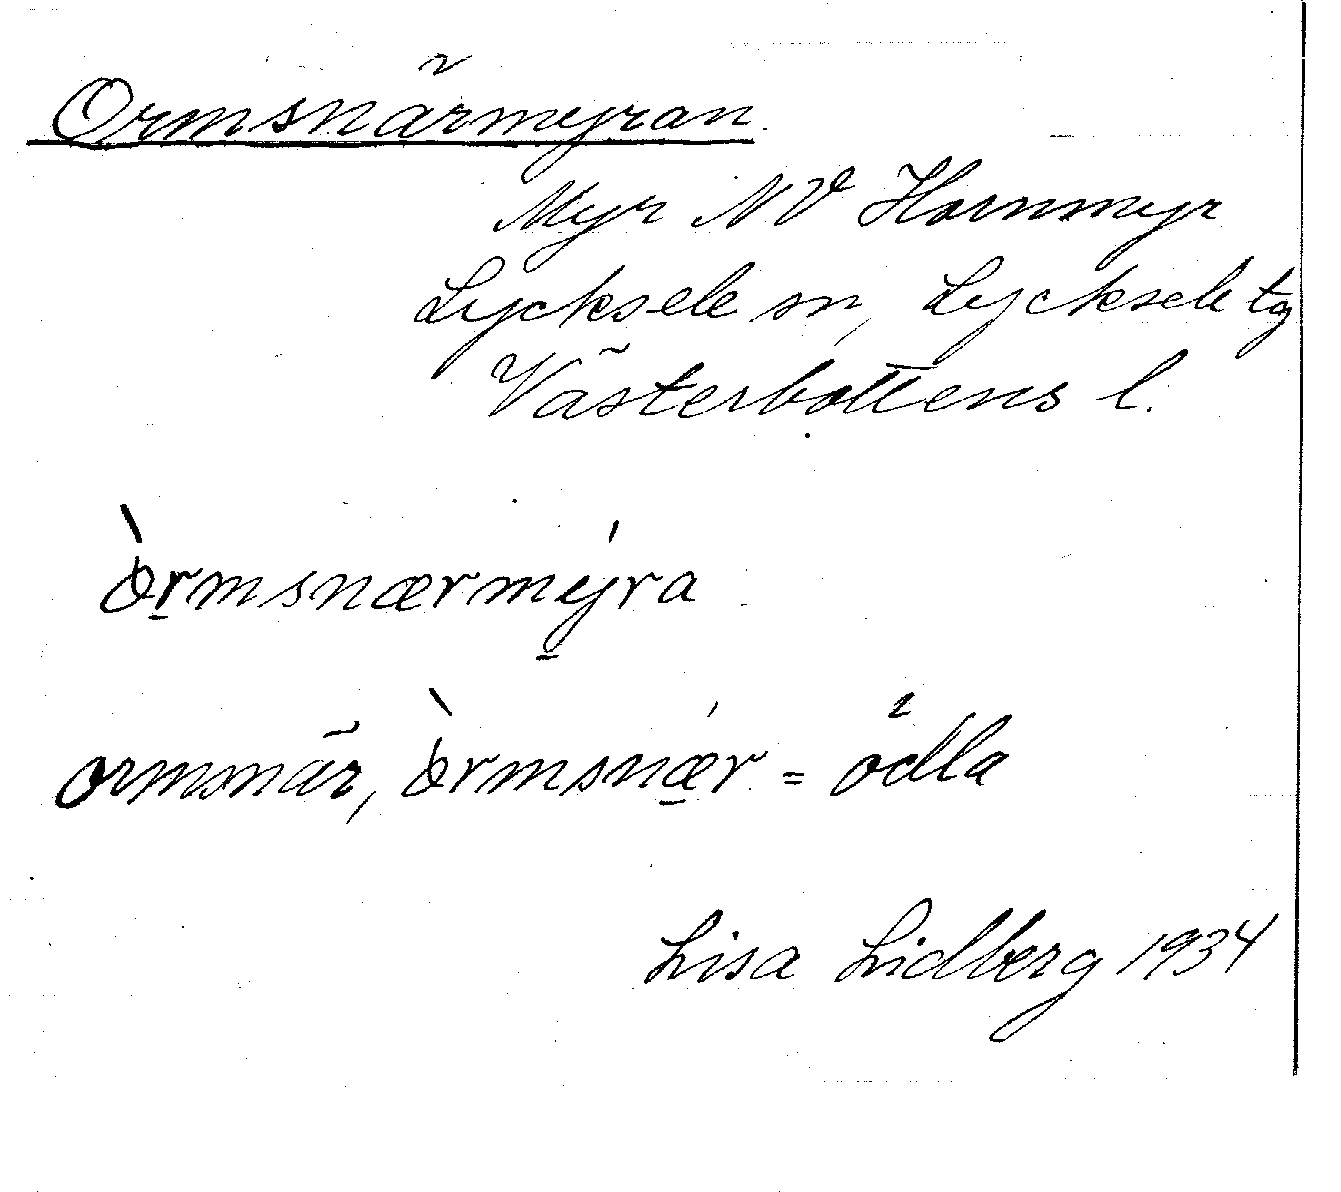 Ormsnärmyran
Myr NV Hornmyr
Lycksele sn, Lycksele tg
Västerbottens l.
òrmsnærmýra
ormsnär, òrmsnǽr = ödla
Lisa Lidberg 1934